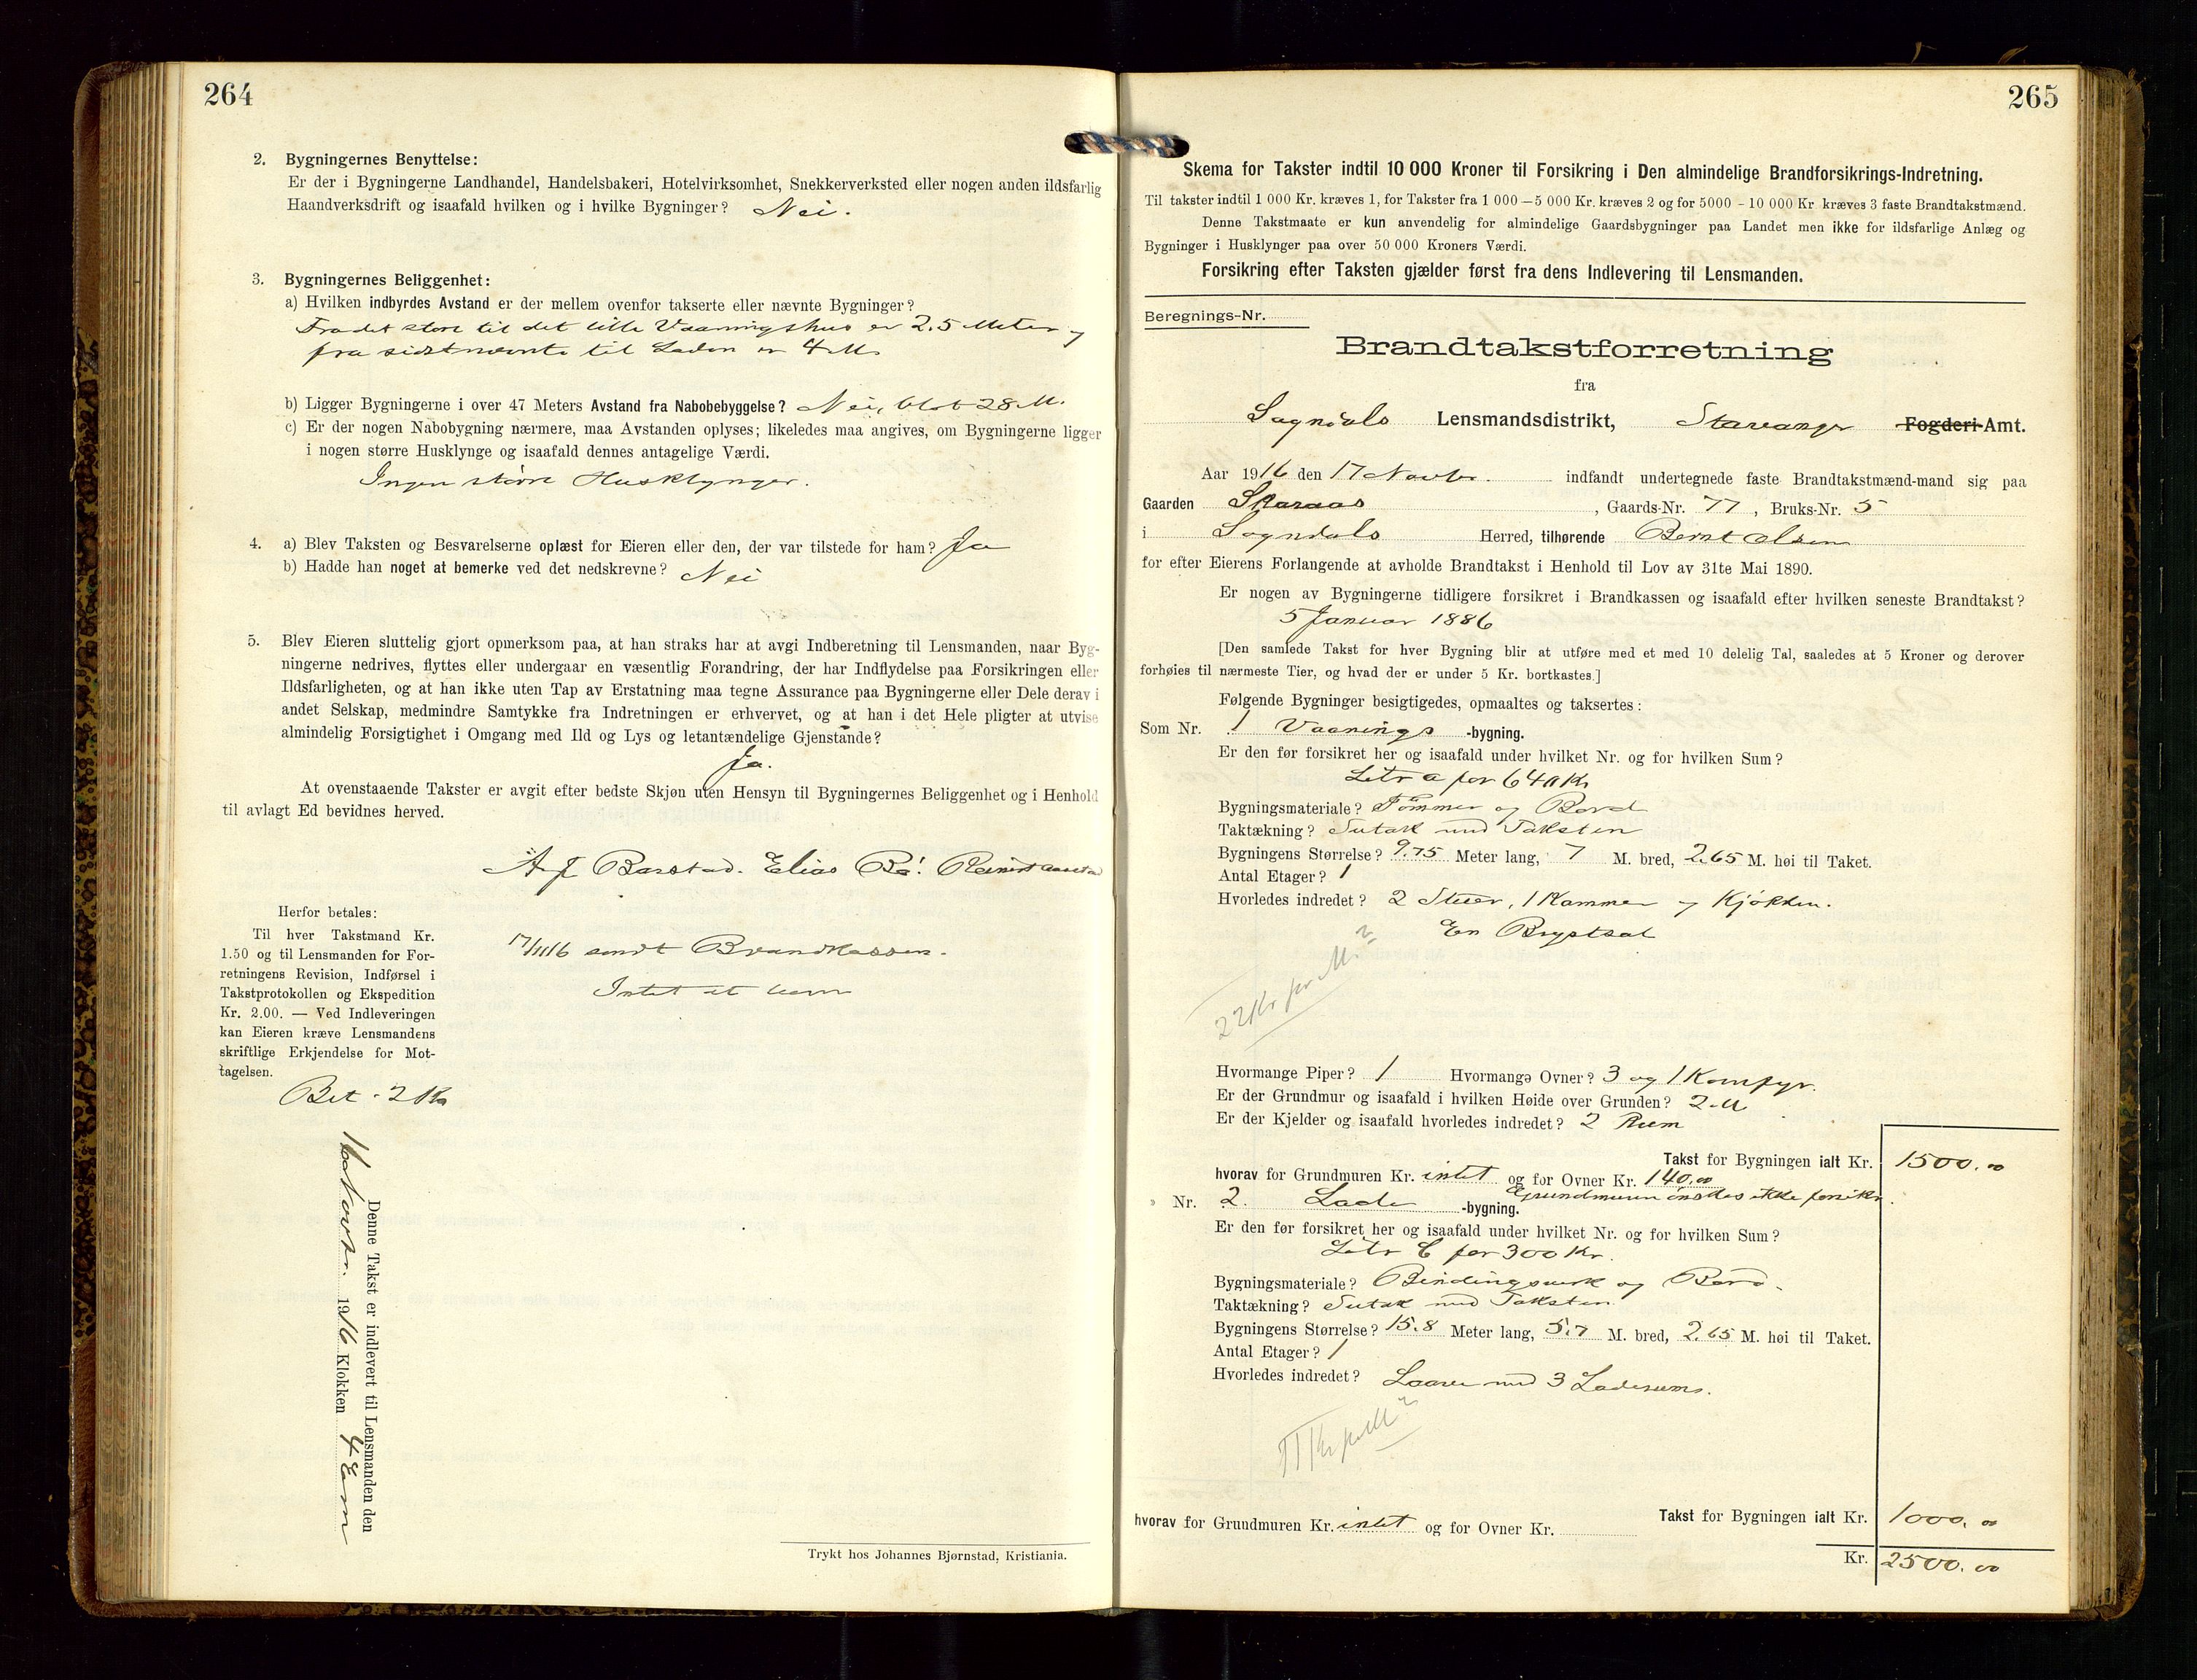 264
2. Bygningernes Benyttelse:
Er der i Bygningerne Landhandel, Handelsbakeri, Hotelvirksomhet, Snekkerverksted eller nogen anden ildsfarlig
Haandverksdrift og isaafald hvilken og i hvilke Bygninger? Nei.
3. Bygningernes Beliggenhet:
a) Hvilken indbyrdes Avstand er der mellem ovenfor takserte eller nævnte Bygninger?
Fra det store til det lille Vaaningshus er 2.5 Meter og
fra sidstnævnte til Laden er 4 M.
b) Ligger Bygningerne i over 47 Meters Avstand fra Nabobebyggelse? Nei, blot 28 M.
c) Er der nogen Nabobygning nærmere, maa Avstanden oplyses; likeledes maa angives, om Bygningerne ligger
i nogen større Husklynge og isaafald dennes antagelige Værdi.
Ingen større Husklynger.
4. a) Blev Taksten og Besvarelserne oplæst for Eieren eller den, der var tilstede for ham? Ja
b) Hadde han noget at bemerke ved det nedskrevne? Nei
5. Blev Eieren sluttelig gjort opmerksom paa, at han straks har at avgi Indberetning til Lensmanden, naar Byg-
ningerne nedrives, flyttes eller undergaar en væsentlig Forandring, der har Indflydelse paa Forsikringen eller
Ildsfarligheten, og at han ikke uten Tap av Erstatning maa tegne Assurance paa Bygningerne eller Dele derav i
andet Selskap, medmindre Samtykke fra Indretningen er erhvervet, og at han i det Hele pligter at utvise
almindelig Forsigtighet i Omgang med Ild og Lys og letantændelige Gjenstande?
Ja.
At ovenstaaende Takster er avgit efter bedste Skjøn uten Hensyn til Bygningernes Beliggenhet og i Henhold
til avlagt Ed bevidnes herved.
Barstad. Elias
Herfor betales:
Til hver Takstmand Kr.
1.50 og til Lensmanden for For-
retningens Revision, Indførsel i
Takstprotokollen og Ekspedition
Kr. 2.00. — Ved Indleveringen
kan Eieren kræve Lensmandens
skriftlige Erkjendelse for Mot-
tagelsen.
17/11 16 sendt Brandkassen.
Intet at bem
Bet. 2 Kr
Denne Takst er indlevert til Lensmanden den
Novbr. 1916 Klokken 4 Em
Trykt hos Johannes Bjørnstad, Kristiania.
265
Skema for Takster indtil 10 000 Kroner til Forsikring i Den almindelige Brandforsikrings-Indretning.
Til takster indtil 1 000 Kr. kræves 1, for Takster fra 1 000—5 000 Kr. kræves 2 og for 5000 - 10 000 Kr kræves 3 faste Brandtakstmænd.
Denne Takstmaate er kun anvendelig for almindelige Gaardsbygninger paa Landet men ikke for ildsfarlige Anlæg og
Bygninger i Husklynger paa over 50 000 Kroners Værdi.
Forsikring efter Taksten gjælder først fra dens Indlevering til Lensmanden.
Beregnings-Nr.
Brandtakstforretning
fra
Sogndals Lensmandsdistrikt, Stavanger Fogderi-Amt.
Aar 1916 den 17 Novbr. indfandt undertegnede faste Brandtakstmænd-mand sig paa
Gaarden Skaraas, Gaards-Nr. 77, Bruks-Nr. 5
i Sogndals Herred, tilhørende Bernt Olsen
for efter Eierens Forlangende at avholde Brandtakst i Henhold til Lov av 31te Mai 1890.
Er nogen av Bygningerne tidligere forsikret i Brandkassen og isaafald efter hvilken seneste Brandtakst?
5 Januar 1886
[Den samlede Takst for hver Bygning blir at utføre med et med 10 delelig Tal, saaledes at 5 Kroner og derover
forhøies til nærmeste Tier, og hvad der er under 5 Kr. bortkastes.]
Følgende Bygninger besigtigedes, opmaaltes og taksertes:
Som Nr. 1 Vaanings -bygning.
Er den før forsikret her og isaafald under hvilket Nr. og for hvilken Sum?
Litr a for 640 Kr
Bygningsmateriale? Tømmer og Bord
Taktækning? Sutak med Taksten
Bygningens Størrelse? 9.75 Meter lang, 7 M. bred, 2.65 M. høi til Taket.
Antal Etager? 1
Hvorledes indredet? 2 Stuer, 1 Kammer og Kjøkken.
En Brystsal
22 Kr pr M²
Hvormange Piper? 1 Hvormange Ovner? 3 og 1 Komfyr.
Er der Grundmur og isaafald i hvilken Høide over Grunden? 2 M
Er der Kjelder og isaafald hvorledes indredet? 2 Rum
Takst for Bygningen ialt Kr. 1500.00
hvorav for Grundmuren Kr. intet og for Ovner Kr. 140.00
Grundmuren ønskes ikke forsikr.
» Nr. 2. Lade -bygning.
Er den før forsikret her og isaafald under hvilket Nr. og for hvilken Sum?
Litr C for 300 Kr.
Bygningsmateriale? Bindingsverk og Bord.
Taktækning? Sutak med Taksten
Bygningens Størrelse? 15.8 Meter lang, 5.7 M. bred, 2.65 M. høi til Taket.
Antal Etager? 1
Hvorledes indredet? Laave med 3 Laderums.
11 Kr pr M²
Takst for Bygningen ialt Kr. 1000.00
hvorav for Grundmuren Kr. intet og for Ovner Kr.
Kr. 2500.00